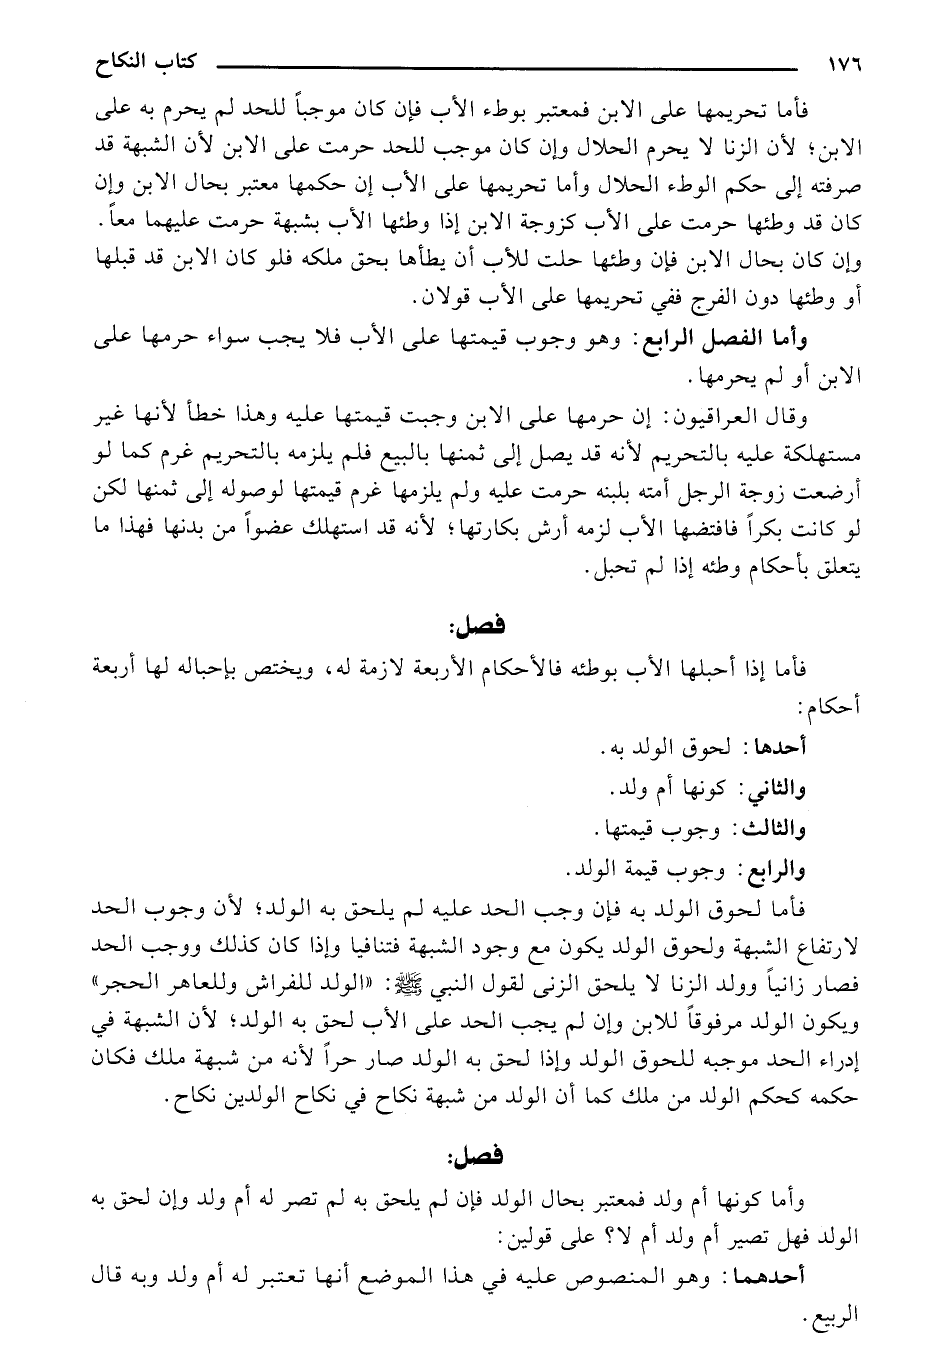 ١٧٦ كتاب النكاح
فأما تحريمها على الابن فمعتبر بوطء الأب فإن كان موجباً للحد لم يحرم به على
الابن؛ لأن الزنا لا يحرم الحلال وإن كان موجب للحد حرمت على الابن لأن الشبهة قد
صرفته إلى حكم الوطء الحلال وأما تحريمها على الأب إن حكمها معتبر بحال الابن وإن
كان قد وطئها حرمت على الأب كزوجة الابن إذا وطئها الأب بشبهة حرمت عليهما معاً.
وإن كان بحال الابن فإن وطئها حلت للأب أن يطأها بحق ملكه فلو كان الابن قد قبلها
أو وطئها دون الفرج ففي تحريمها على الأب قولان.
وأما الفصل الرابع: وهو وجوب قيمتها على الأب فلا يجب سواء حرمها على
الابن أو لم يحرمها.
وقال العراقيون: إن حرمها على الابن وجبت قيمتها عليه وهذا خطأ لأنها غير
مستهلكة عليه بالتحريم لأنه قد يصل إلى ثمنها بالبيع فلم يلزمه بالتحريم غرم كما لو
أرضعت زوجة الرجل أمته بلبنه حرمت عليه ولم يلزمها غرم قيمتها لوصوله إلى ثمنها لكن
لو كانت بكراً فافتضها الأب لزمه أرش بكارتها؛ لأنه قد استهلك عضواً من بدنها فهذا ما
يتعلق بأحكام وطئه إذا لم تحبل.
فصل:
فأما إذا أحبلها الأب بوطئه فالأحكام الأربعة لازمة له، ويختص بإحباله لها أربعة
أحكام:
أحدها: لحوق الولد به.
والثاني: كونها أم ولد.
والثالث: وجوب قيمتها.
والرابع: وجوب قيمة الولد.
فأما لحوق الولد به فإن وجب الحد عليه لم يلحق به الولد؛ لأن وجوب الحد
لارتفاع الشبهة ولحوق الولد يكون مع وجود الشبهة فتنافيا وإذا كان كذلك ووجب الحد
فصار زانياً وولد الزنا لا يلحق الزنى لقول النبي ﷺ: «الولد للفراش وللعاهر الحجر»
ويكون الولد مرفوقاً للابن وإن لم يجب الحد على الأب لحق به الولد؛ لأن الشبهة في
إدراء الحد موجبه للحوق الولد وإذا لحق به الولد صار حراً لأنه من شبهة ملك فكان
حكمه كحكم الولد من ملك كما أن الولد من شبهة نكاح في نكاح الولدين نكاح.
فصل:
وأما كونها أم ولد فمعتبر بحال الولد فإن لم يلحق به لم تصر له أم ولد وإن لحق به
الولد فهل تصير أم ولد أم لا؟ على قولين:
أحدهما: وهو المنصوص عليه في هذا الموضع أنها تعتبر له أم ولد وبه قال
الربيع.